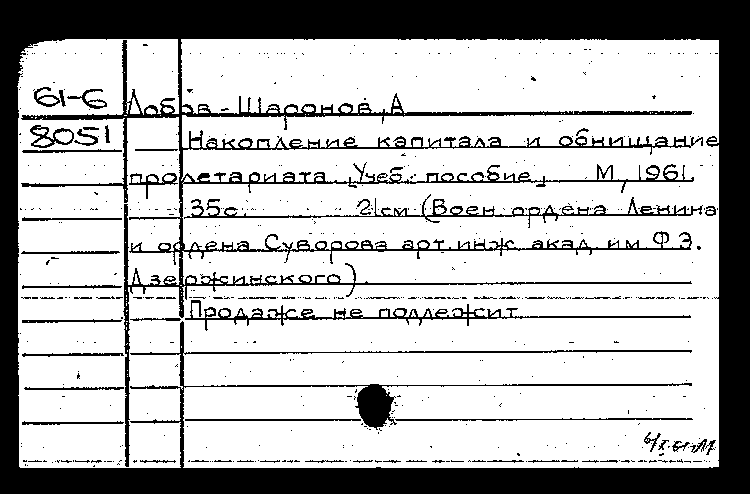 61-6 Лобов-Шаронов, А
8051 Накопление капитала и обнищание
пролетариата. [Учеб. пособие] М, 1961.
35с. 21см (Воен. ордена Ленина
и ордена Суворова арт. инж. акад. им Ф.Э.
Дзержинского).
Продаже не подлежит.